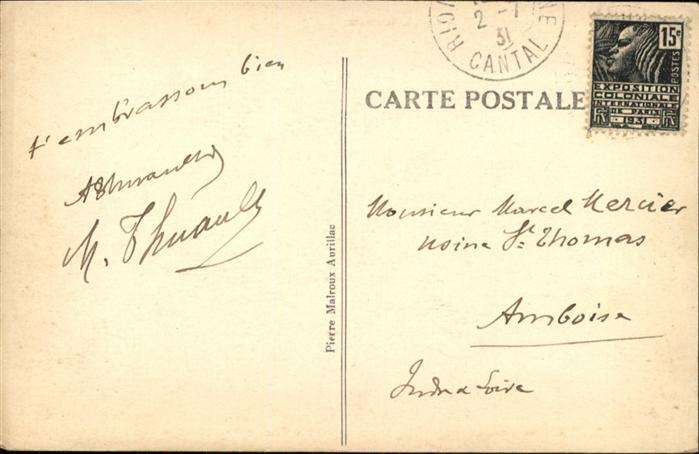 t'embrassons bien
M. Thuault
Pierre Malroux Aurillac
CARTE POSTALE
31
CANTAL
15c
POSTES
EXPOSITION
COLONIALE
INTERNATIONALE
DE PARIS
1931
Monsieur Marcel Mercier
Usine St Thomas
Amboise
Indre & Loire